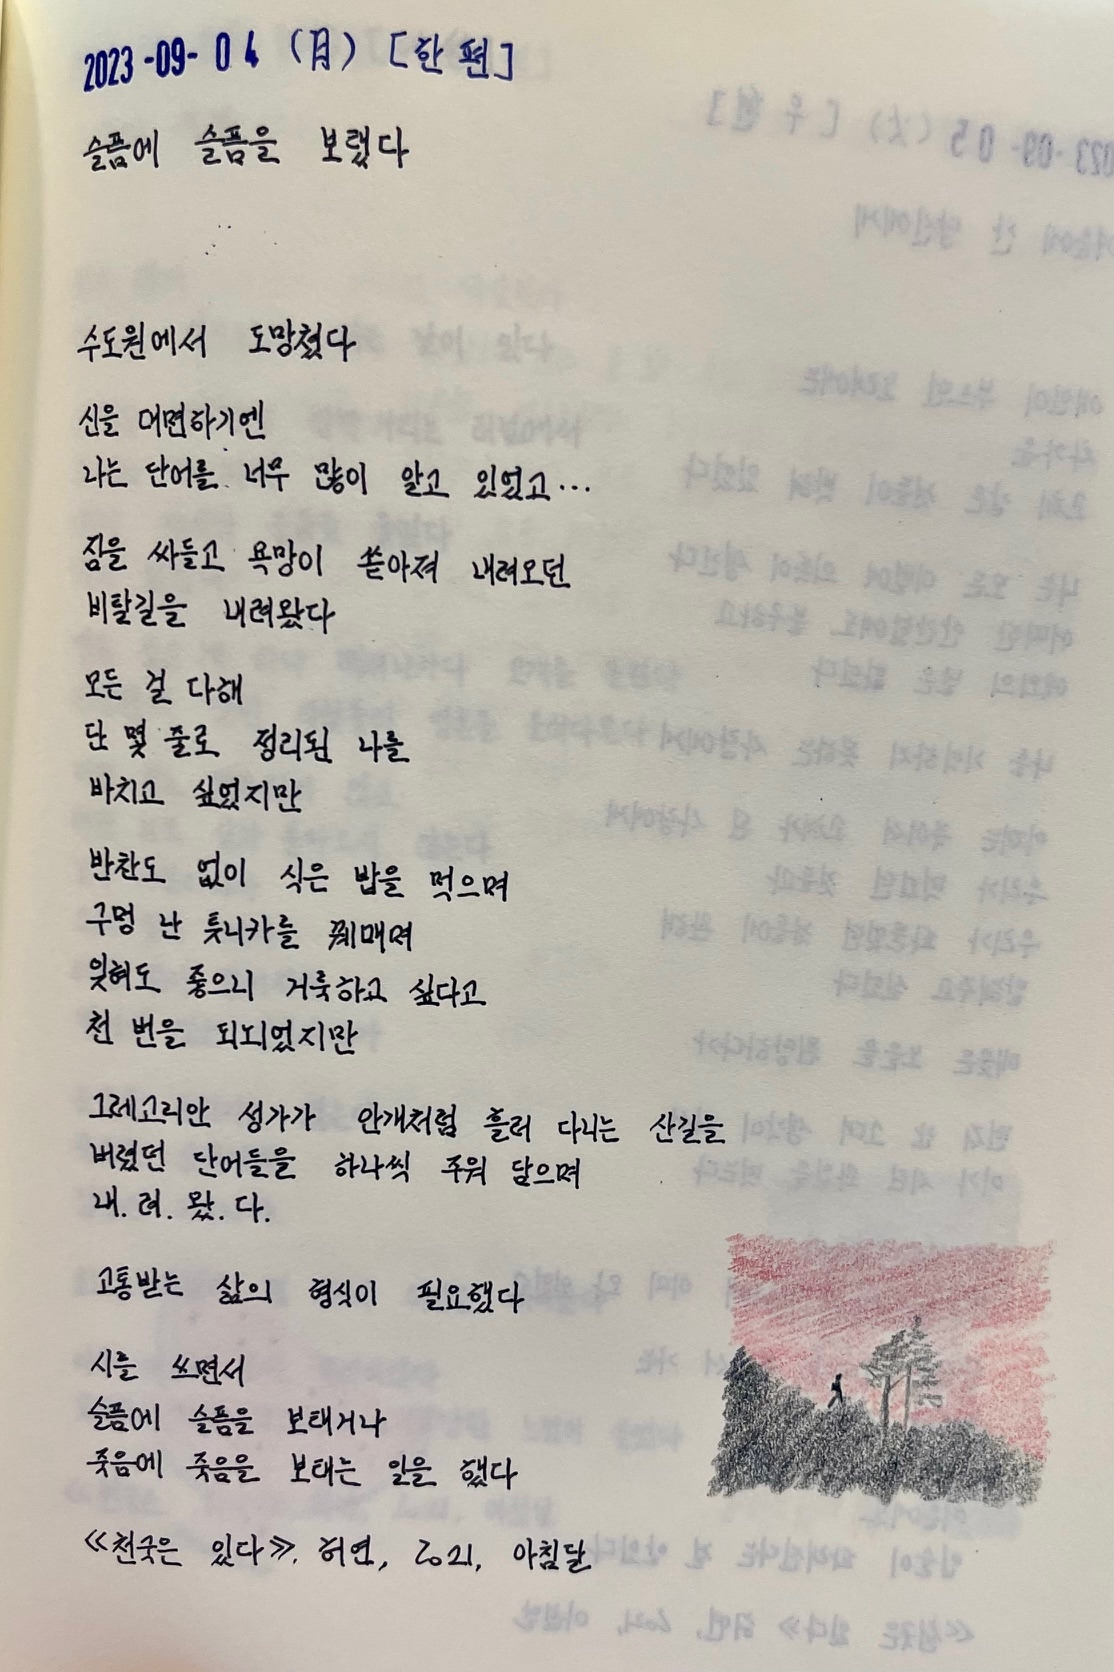 2023-09-04 (月) [한 편]
슬픔에 슬픔을 보탰다
수도원에서 도망쳤다
신을 대면하기엔
나는 단어를 너무 많이 알고 있었고...
짐을 싸들고 욕망이 쏟아져 내려오던
비탈길을 내려왔다
모든 걸 다해
단 몇 줄로 정리된 나를
바치고 싶었지만
반찬도 없이 식은 밥을 먹으며
구멍 난 튯니카를 꿰매며
잊혀도 좋으니 거룩하고 싶다고
천 번을 되뇌었지만
그레고리안 성가가 안개처럼 흘러 다니는 산길을
버렸던 단어들을 하나씩 주워 담으며
내. 려. 왔. 다.
고통받는 삶의 형식이 필요했다
시를 쓰면서
슬픔에 슬픔을 보태거나
죽음에 죽음을 보태는 일을 했다
≪천국은 있다≫, 허연, 2021, 아침달